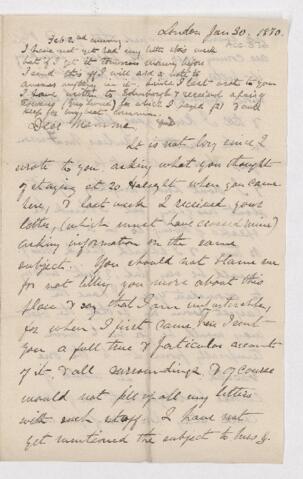 London Jan 30. 1880.
Feb 2nd evening
I have not yet had my letter this week
but if I get it tomorrow morning before
I send this off I will add a note to
answer anything in it. Since I last wrote to you
I have written to Edinburgh & received a pair of
for which I paid
keep for my next
Dear Mamma,
It is not long since I
wrote to you asking what you thought
of staying at 20. when you came
here, & last week I received your
letter, (which must have crossed mine)
asking information on the same
subject. You should not blame me
for not telling you more about this
place & say that I am unsatisfactory,
for when I first came here I sent
you a full true & particular account
of it & all surroundings & of course
would not fill up all my letters
with such stuff. I have not
yet mentioned the subject to Miss J.